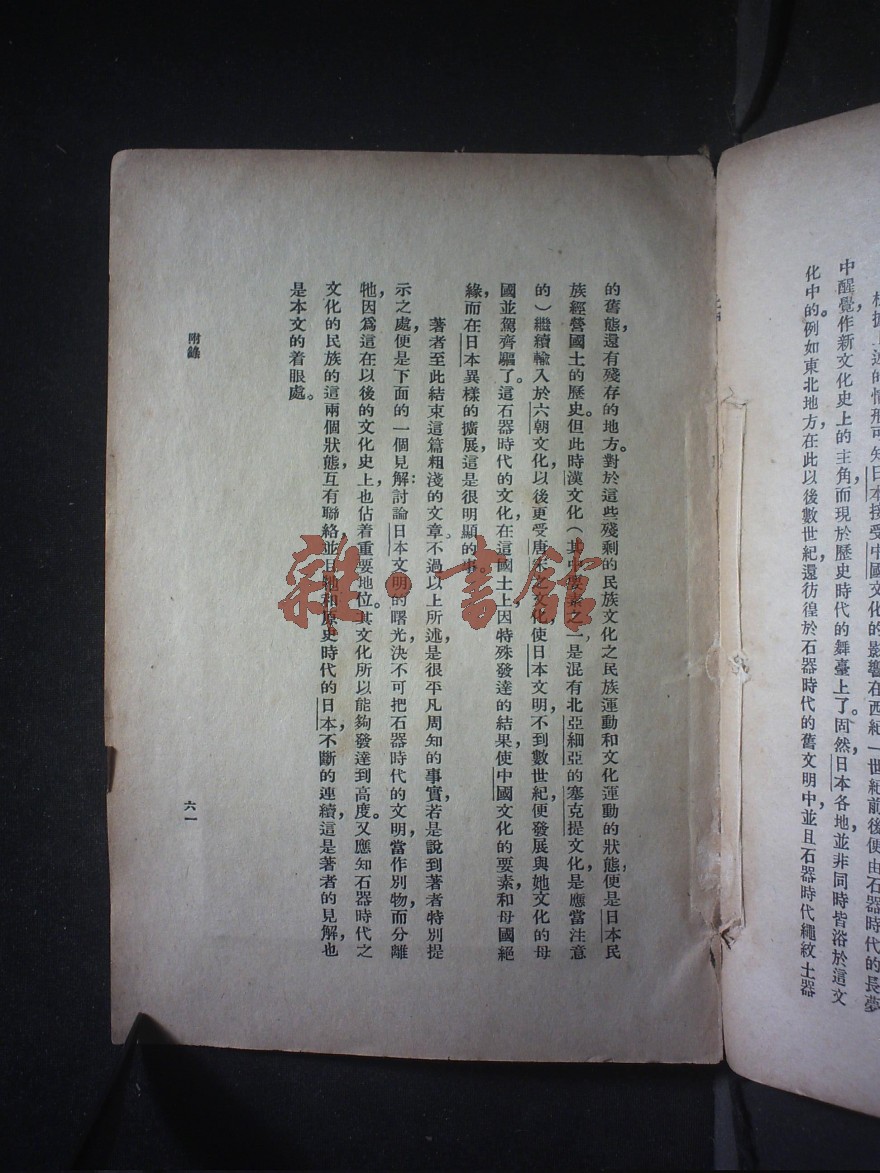 中醒覺，作新文化史上的主角而現於歷史時代的舞臺上了。固然，日本各地，並非同時皆浴於這文
化中的。例如東北地方，在此以後數世紀，還彷徨於石器時代的舊文明中，並且石器時代繩紋土器
的舊態，還有殘存的地方。對於這些殘剩的民族文化之民族運動和文化運動的狀態，便是日本民
族經營國土的歷史。但此時漢文化（其中要素之一，是混有北亞細亞的塞克提文化，是應當注意
的）繼續輸入於六朝文化，以後更受唐宋之文化，使日本文明，不到數世紀，便發展與她文化的母
國並駕齊驅了。這石器時代的文化，在這國土上，因特殊發達的結果，使中國文化的要素，和母國絕
緣，而在日本異樣的擴展，這是很明顯的事。
著者至此結束這篇粗淺的文章。不過以上所述，是很平凡周知的事實，若是說到著者特別提
示之處，便是下面的一個見解：討論日本文明的曙光，決不可把石器時代的文明，當作別物，而分離
牠，因爲這在以後的文化史上，也佔着重要地位。其文化所以能夠發達到高度。又應知石器時代之
文化的民族的這兩個狀態，互有聯絡，並且她和原史時代的日本，不斷的連續，這是著者的見解，也
是本文的着眼處。
附錄
六一
雜·書館